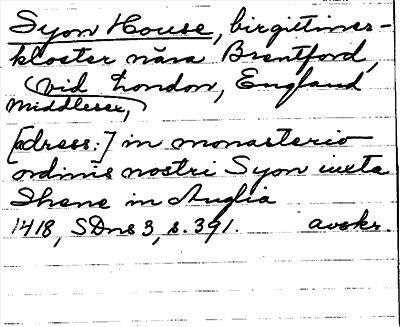 Syon House, birgittiner-
kloster nära Brentford,
(vid London, England
Middlesex,)
[adress:] in monasterio
ordinis nostri Syon iuxta
Shene in Anglia
1418, SDns 3, s. 391. avskr.